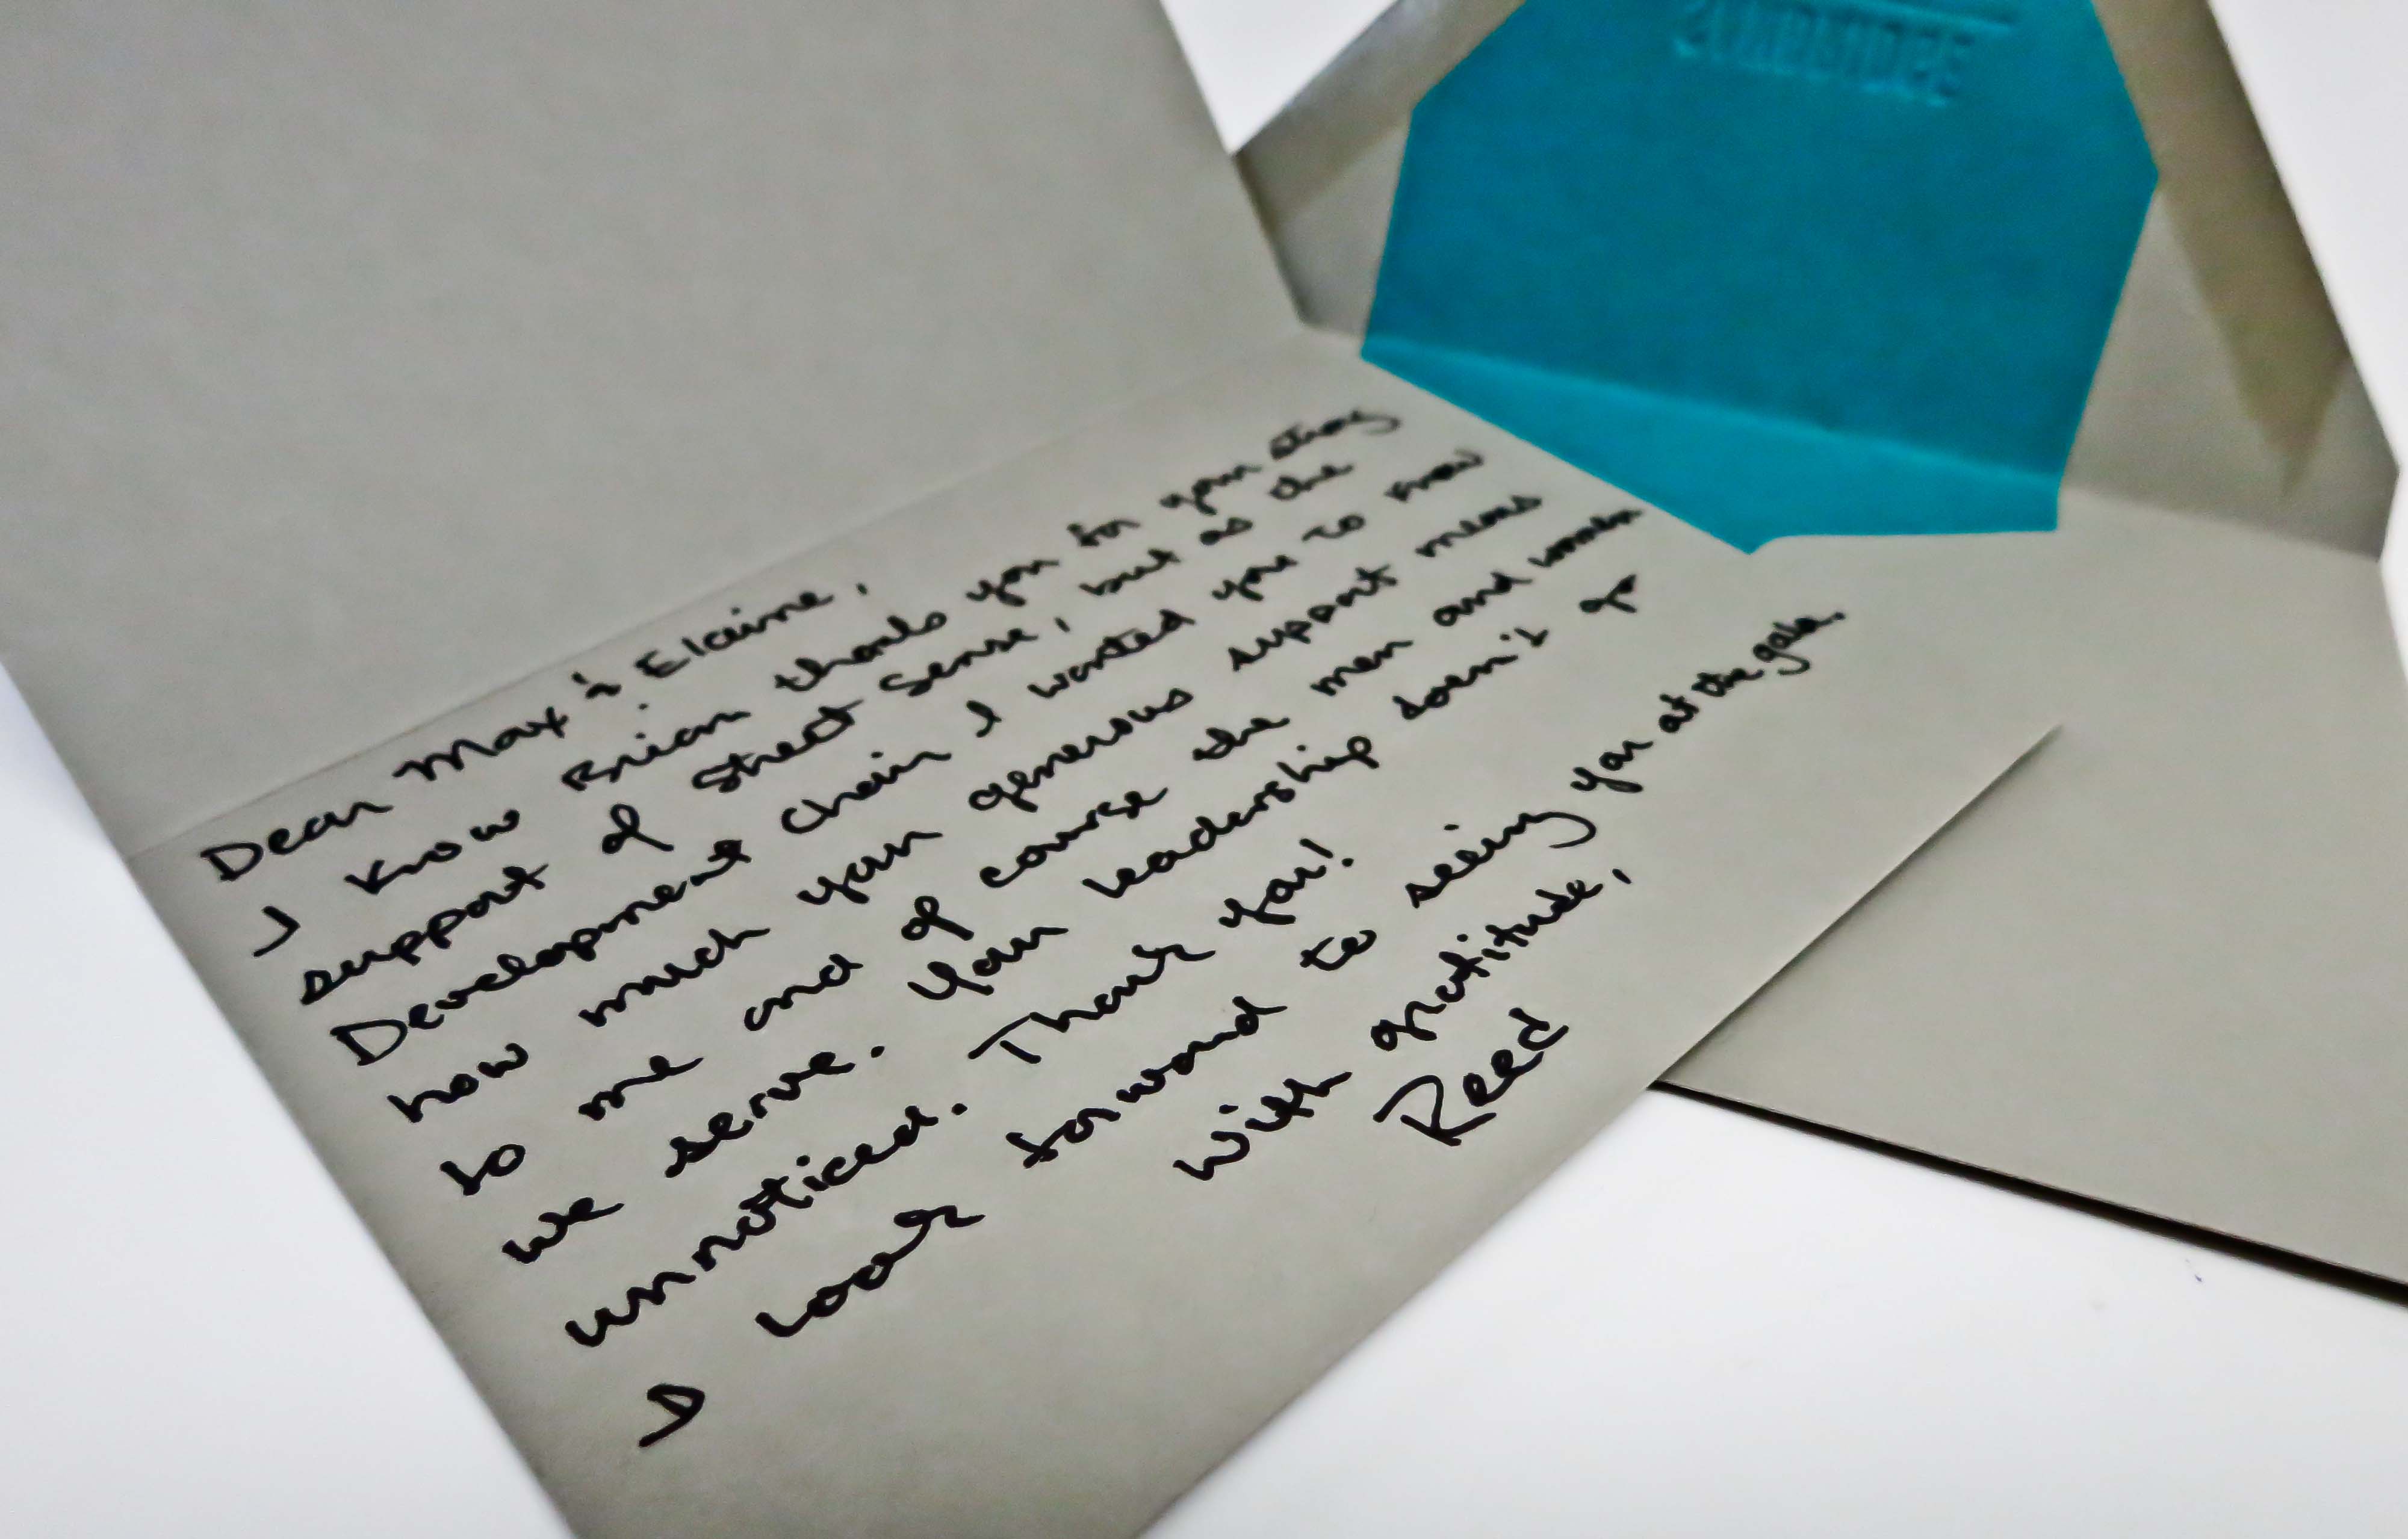 Dear Max & Elaine,
I know Brian thanks you for your strong
support of Street Sense, but as the
Development Chair I wanted you to know
how much your generous support means
to me and of course the men and women
we serve. Your leadership doesn't go
unnoticed. Thank you!
I look forward to seeing you at the gala.
With gratitude,
Reed